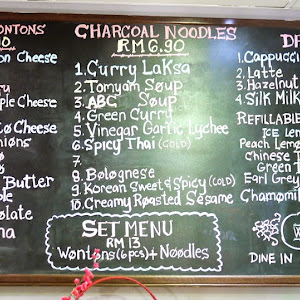 ONTONS
on Cheese
ple Cheese
Cheese
Butter
ble
olate
na
CHARCOAL NOODLES
RM 6.90
1. Curry Laksa
2. Tomyam Soup
3. ABC Soup
4. Green Curry
5. Vinegar Garlic Lychee
6. Spicy Thai (COLD)
7.
8. Bolognese
9. Korean Sweet & Spicy (COLD)
10. Creamy Roasted Sesame
SET MENU
RM 13
Wontons (6pcs) + Noodles
DR
1. Cappucci
2. Latte
3. Hazelnut
4. Silk Milk
REFILLABLE
ICE LEM
Peach Lemo
Chinese T
Green
Earl Grey
Chamomil
DINE IN